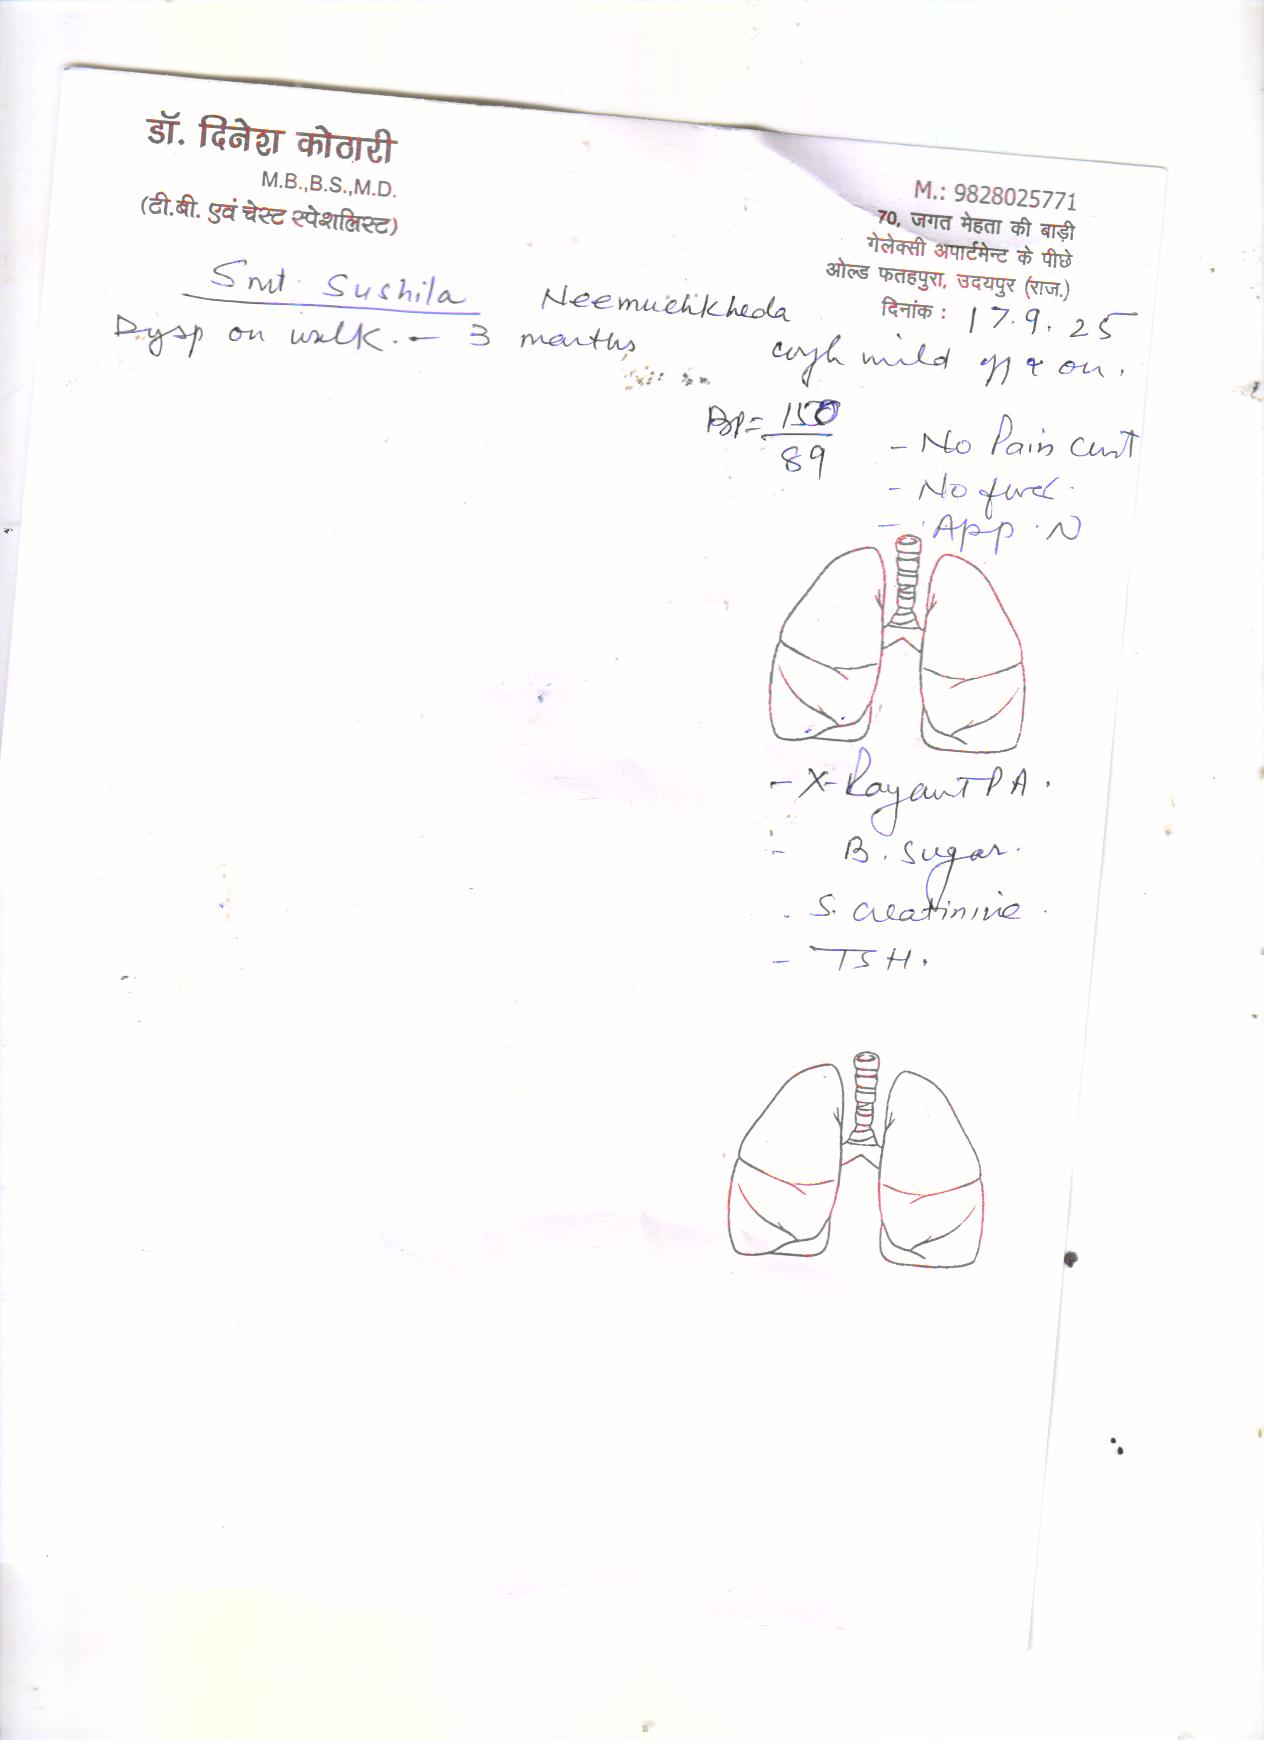 डॉ. दिनेश कोठारी
M.B.,B.S.,M.D.
(टी.बी. एवं चेस्ट स्पेशलिस्ट)
M.: 9828025771
70, जगत मेहता की बाड़ी
गेलेक्सी अपार्टमेन्ट के पीछे
ओल्ड फतहपुरा, उदयपुर (राज.)
दिनांक : 17.9.25
Smt. Sushila Neemuchkheda
Dysp on walk. - 3 months
cough mild off & on.
BP = 150
89
- No Pain
- No fever.
- App. N
- X-Ray PA.
- B. Sugar.
- S. Creatinine.
- TSH.